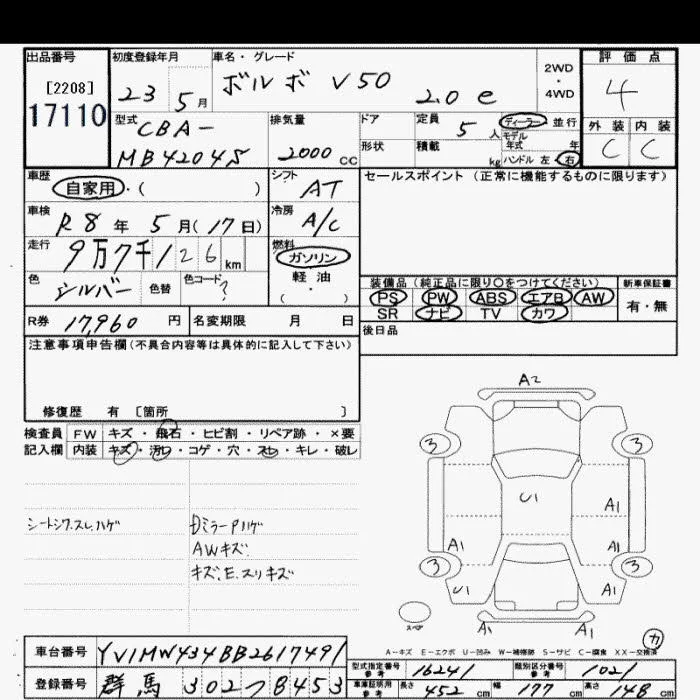 出品番号 初度登録年月 車名・グレード 評価点
[2208]
17110
23 5月 ボルボ V50 2.0 e 2WD・4WD 4
型式 排気量 ドア 定員 ディーラー 並行 外装 内装
CBA- 5人 モデル年式 年 C C
MB4204S 2000cc 形状 積載 kg ハンドル 左・右
車歴 シフト セールスポイント (正常に機能するものに限ります)
自家用・( ) AT
車検 冷房
R8年 5月(17日) A/C
走行 燃料
9万7千126km ガソリン
色 色替 色コード 軽油 装備品(純正品に限り〇をつけてください) 新車保証書
シルバー ? ・( ) PS PW ABS エアB AW 有・無
SR ナビ TV カワ
R券 17,960円 名変期限 月 日 後日品
注意事項申告欄(不具合内容等は具体的に記入して下さい)
修復歴 有 〔箇所 〕
検査員 FW キズ・飛石・ヒビ割・リペア跡・×要
記入欄 内装 キズ・汚れ・コゲ・穴・スレ・キレ・破レ
シートシワ.スレ.ハゲ DミラーPハゲ
AWキズ.
キズ.E.スリキズ
A2
3 3
U1 A1
A1 A1
3 3
U1 A1
スペア A1 A1
カ
A-キズ E-エクボ U-凹み W-補修跡 S-サビ C-腐食 XX-交換済
車台番号 YV1MW434BB2617491
登録番号 群馬 302つ8453
型式指定番号 参考 16241 類別区分番号 参考 1021
車庫証明用 参考 長さ 452cm 幅 177cm 高さ 148cm